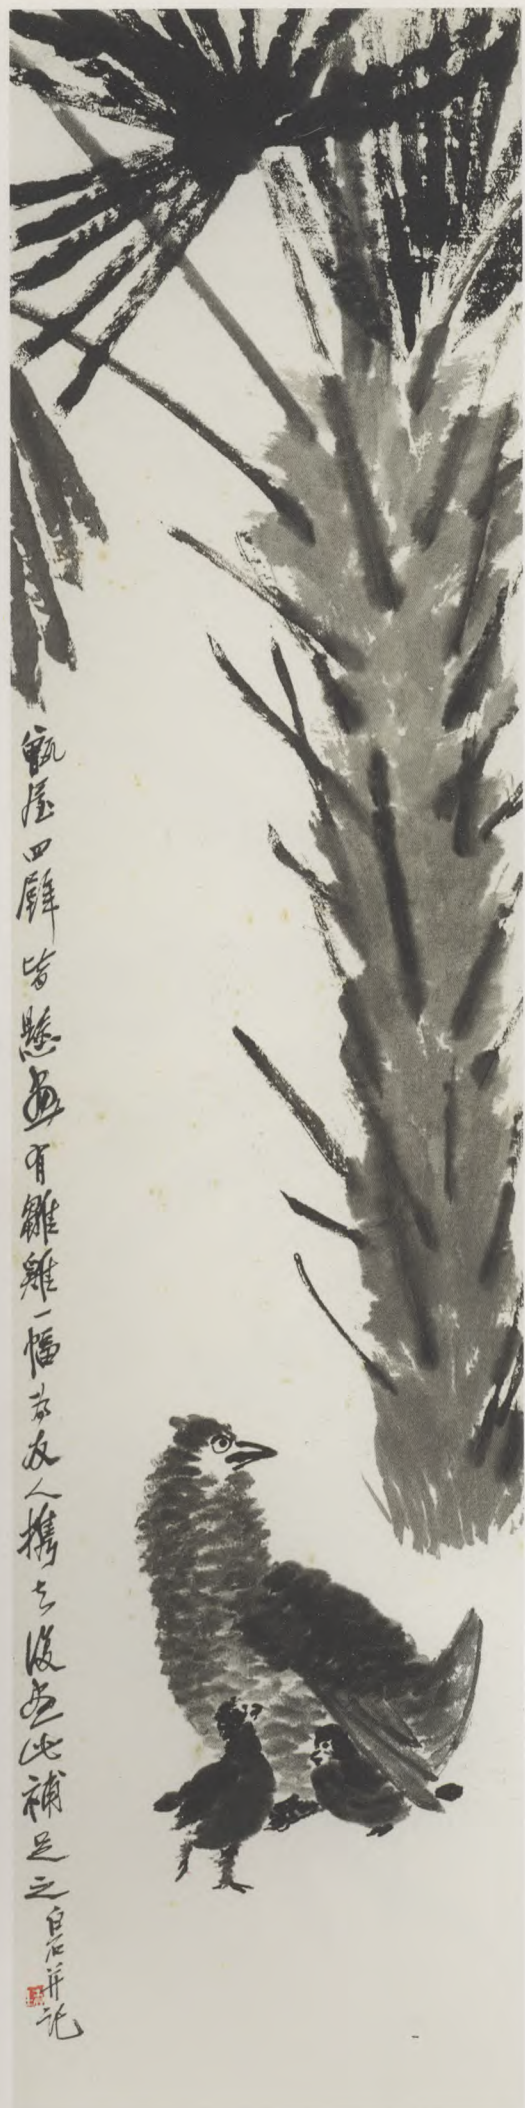 甑屋四壁皆懸畫有雛雞一幅為友人攜去後畫此補足之白石并記